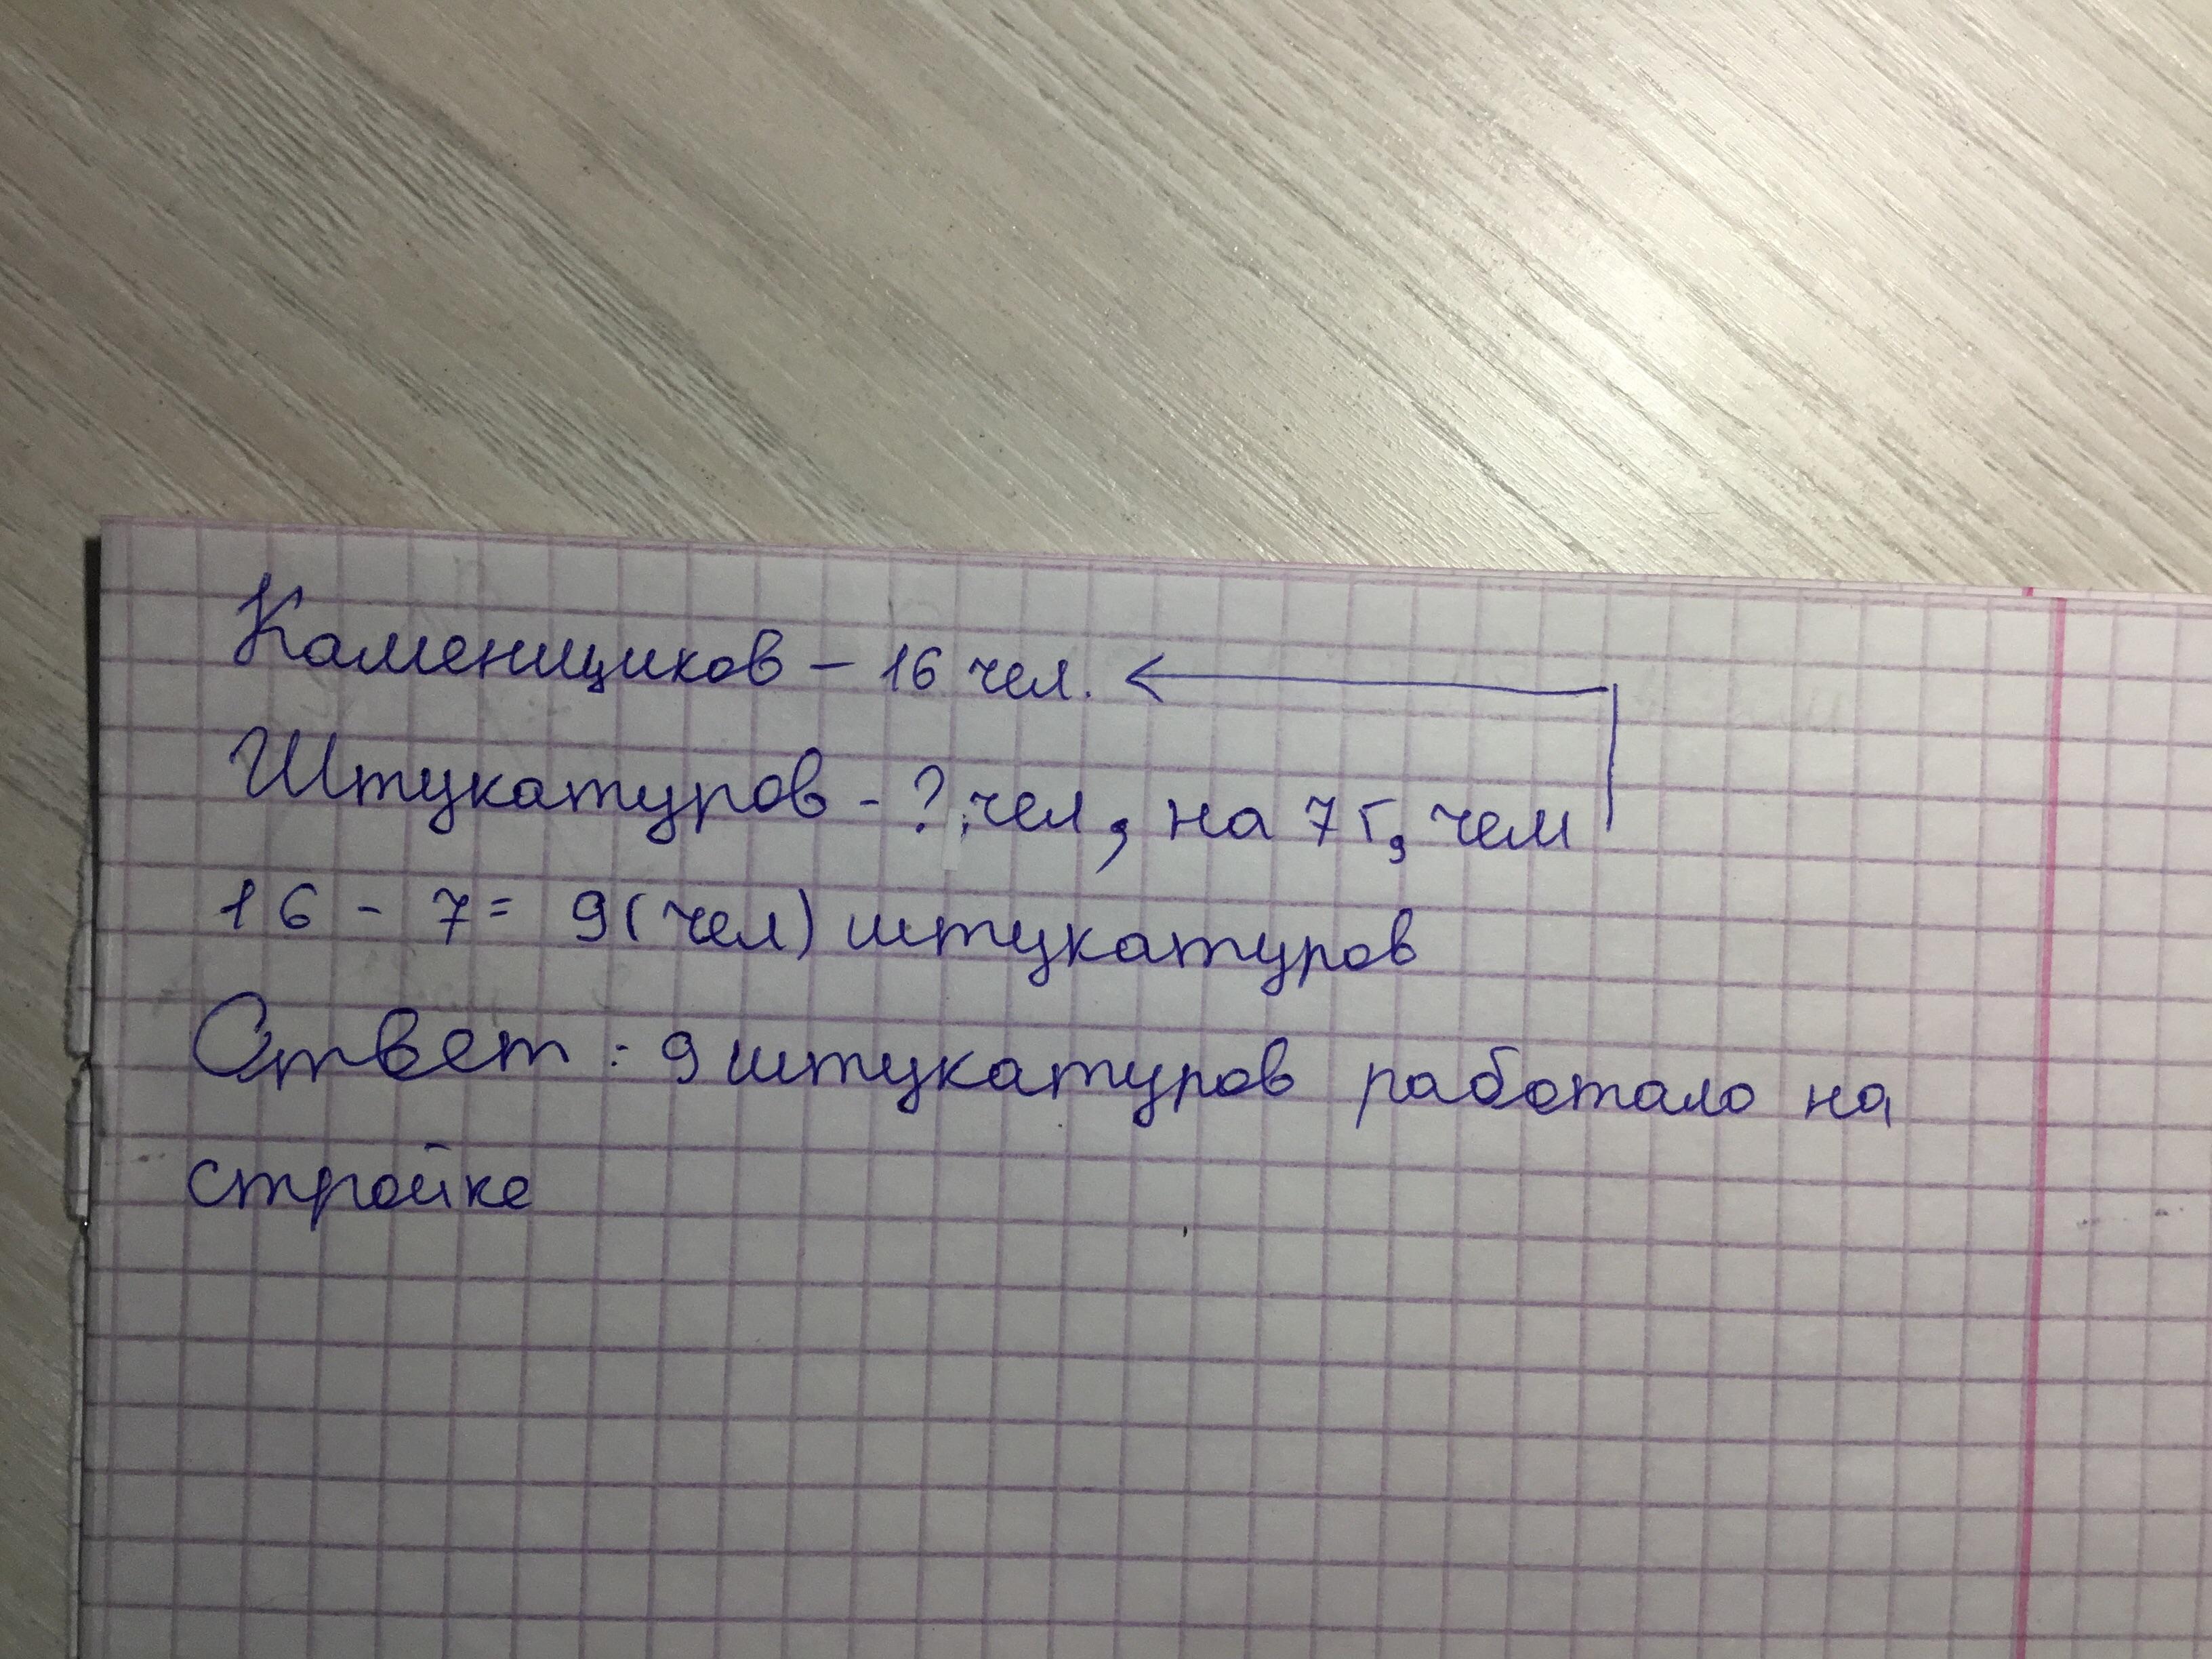 Каменщиков – 16 чел.
Штукатуров - ? чел, на 7 г, чем
16 - 7 = 9 (чел) штукатуров
Ответ: 9 штукатуров работало на
стройке